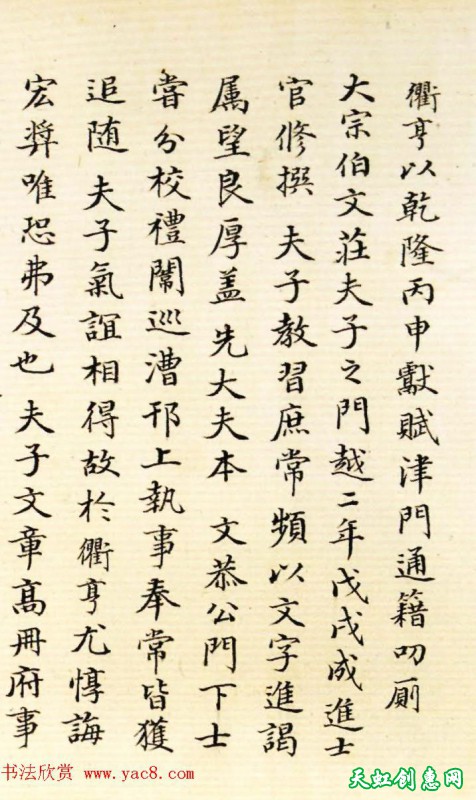 衢亨以乾隆丙申獻賦津門通籍叨厠
大宗伯文莊夫子之門越二年戊戌成進士
官修撰 夫子教習庶常頻以文字進謁
属望良厚盖先大夫本 文恭公門下士
嘗分校禮闈巡漕邗上執事奉常皆獲
追随 夫子氣誼相得故於衢亨尤惇誨
宏奨唯恐弗及也 夫子文章高冊府事
书法欣赏 www.yac8.com
天虹创意网